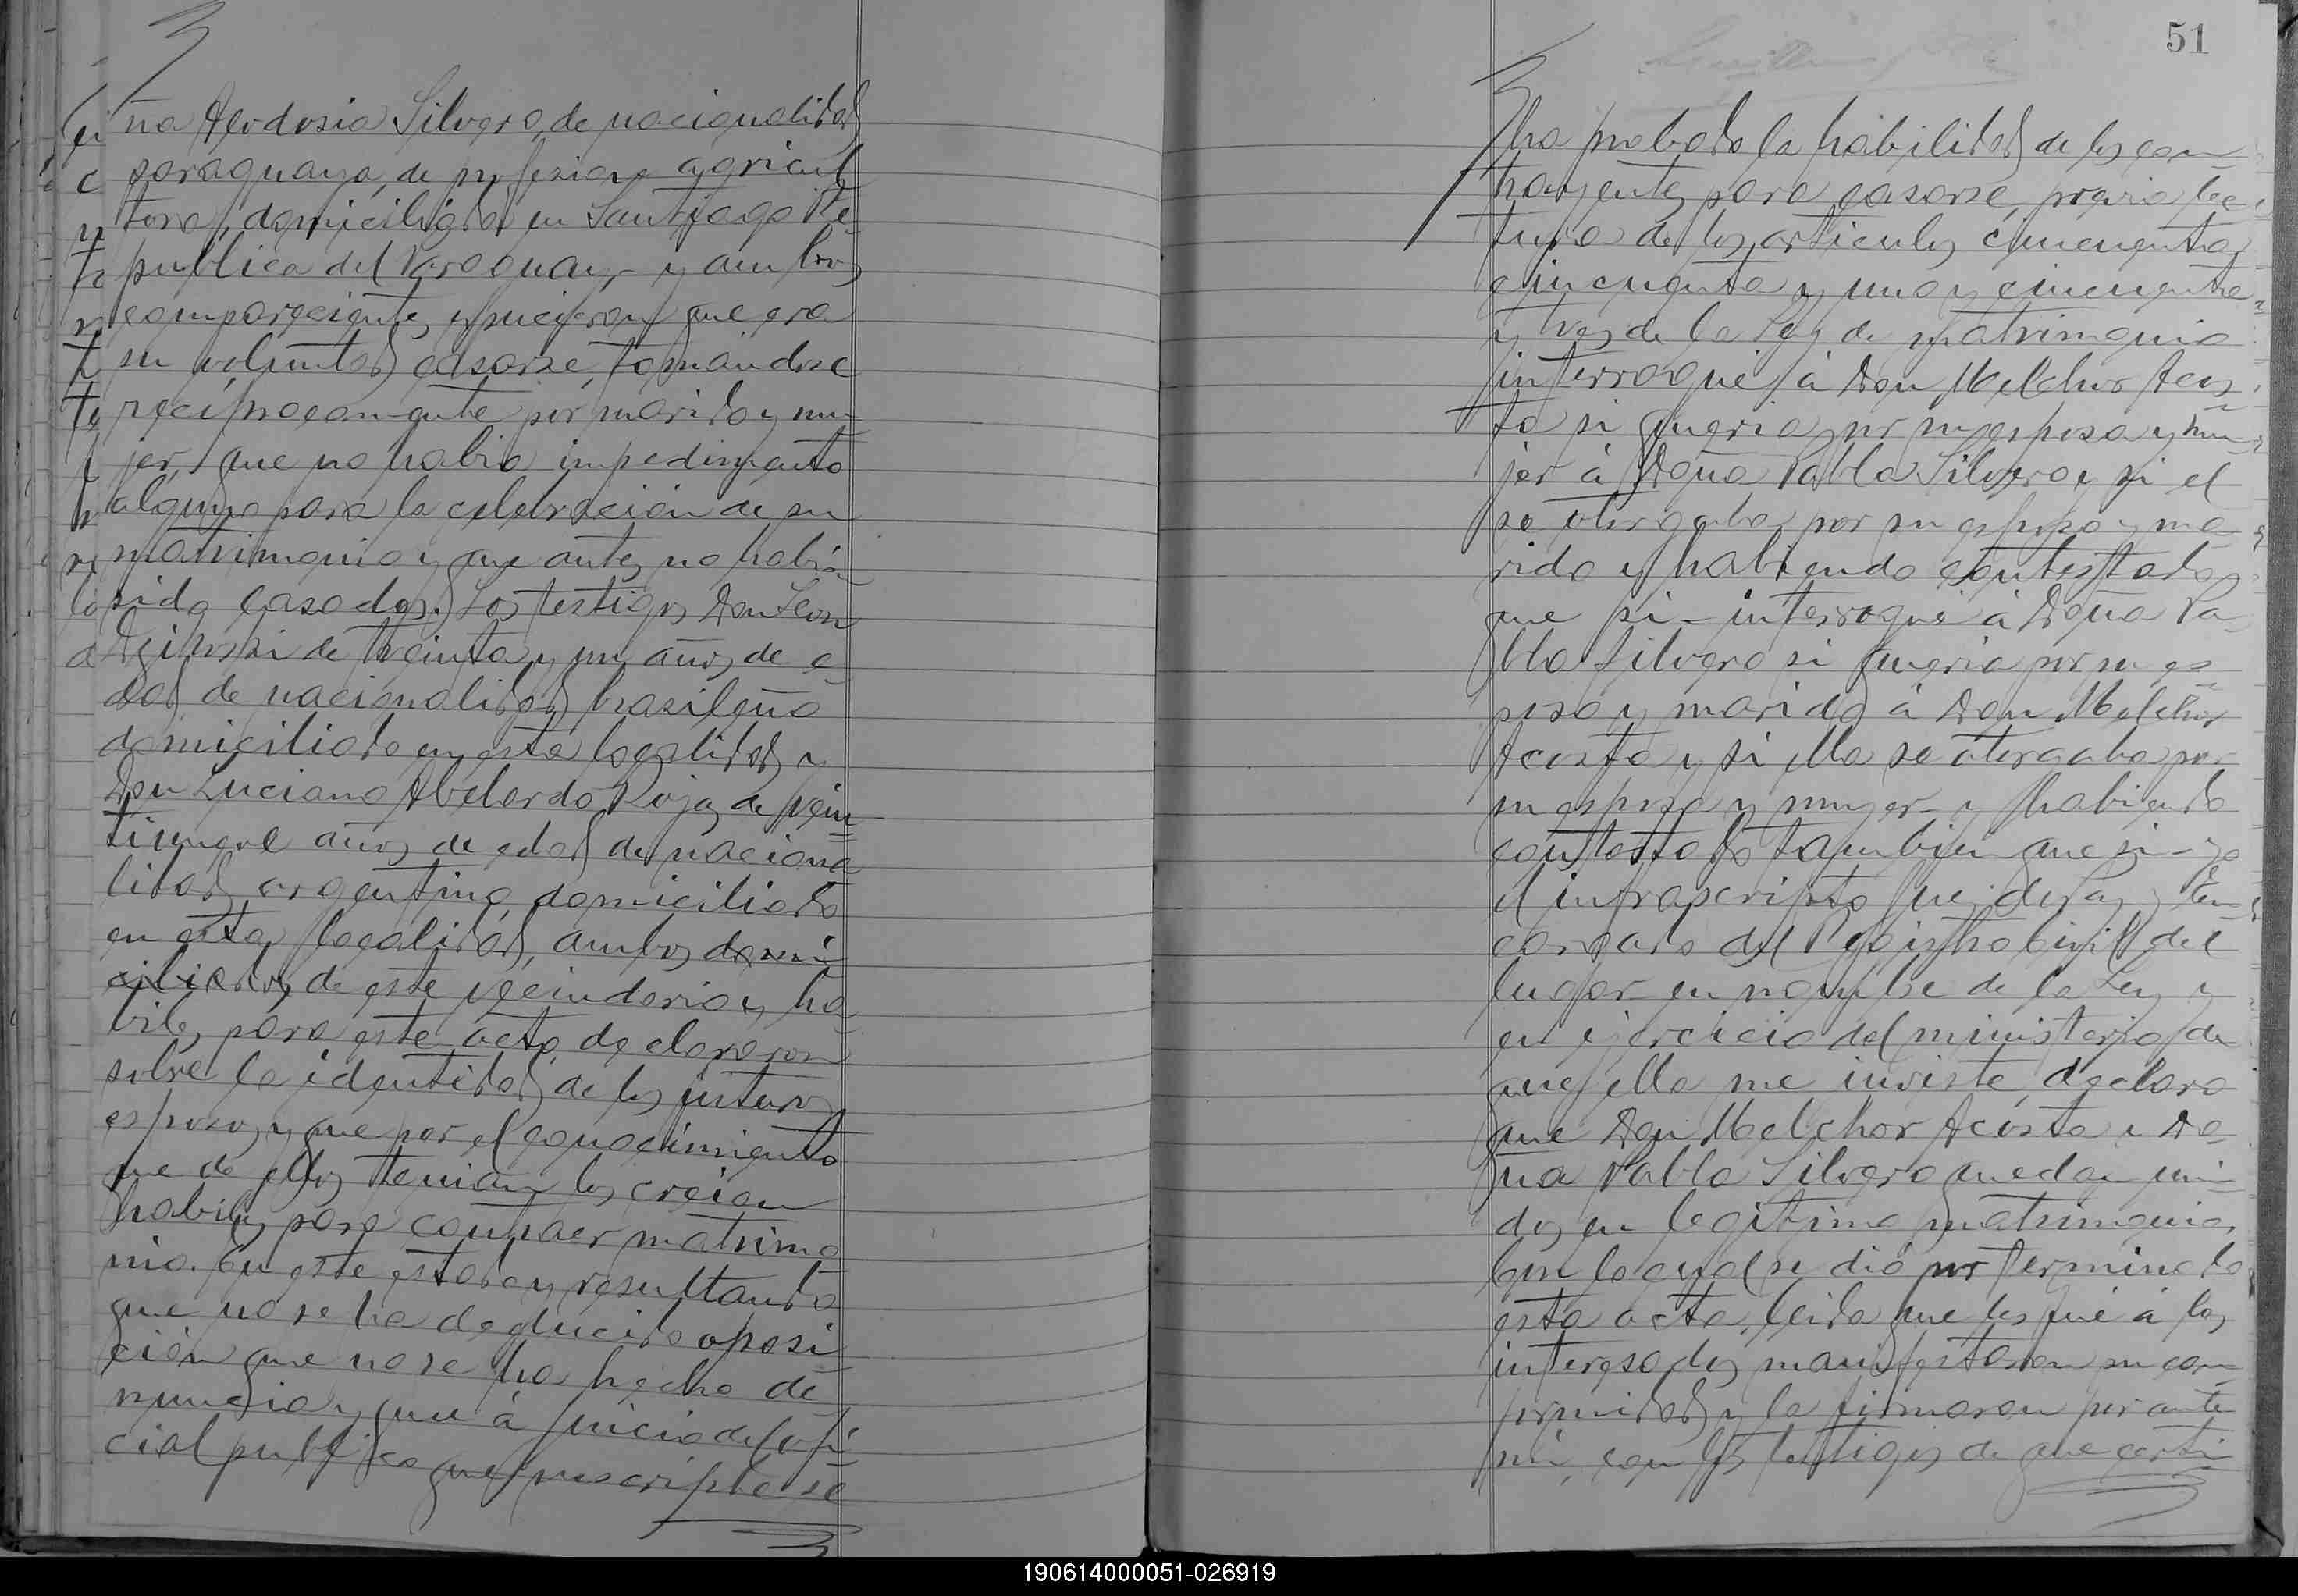 ña Teodosia Silvero, de nacionalidad
paraguaya, de profesion agricul
tora, domiciliada en Santiago Re=
publica del Paraguay,- y ambos
comparecientes expucieron que era
su voluntad casarse, tomandose
reciprocamente por marido y mu-
jer, que no habia impedimento
alguno para la celebración de su
matrimonio y que antes no habian
sido casados. Los testigos Don Leon
de treinta y un años de e=
dad de nacionalidad brasileño
domiciliado en esta localidad y
Don Luciano Abelardo Rojas de vein=
tinueve años de edad de naciona
lidad argentino, domiciliado
en esta localidad, ambos domi
ciliados de este vecindario y ha=
biles para este acto declararon
sobre la identidad de los futuros
esposos y que por el conocimiento
que de ellos tenian los creian
habiles para contraer matrimo
nio. En este estado y resultando
que no se ha deducido oposi
ción que no se ha hecho de
nuncia y que á juicio del ofi
cial publico que suscriptose
51
ha probado la habilidad de los con
trayentes para casarse, previa lec
tura de los articulos cincuenta,
cincuenta y uno y cincuenta
y tres de la Ley de matrimonio
interrogué á Don Melchor Acos=
ta si queria por su esposa y mu=
jer á Doña Pabla Silvero y si el
se otorgaba por su esposo y ma=
rido y habiendo contestado
que si - interrogué á Doña Pa-
bla Silvero si queria por su es=
poso y marido á Don Melchor
Acosta y si ella se otorgaba por
su esposa y mujer - y habiendo
contestado tambien que si - yo
el infrascripto Juez de Paz y En=
cargado del Registro Civil del
lugar en nombre de la Ley y
en ejercicio del ministerio de
que ella me inviste, declaro
que Don Melchor Acosta y Do=
ña Pabla Silvero quedan uni-
dos en legitimo matrimonio,
Con lo cual se dió por terminada
esta acta, leida que les fué á los
interesados manifestaron su con=
formidad y la firmaron por ante
mi, con los testigos de que certi
190614000051-026919